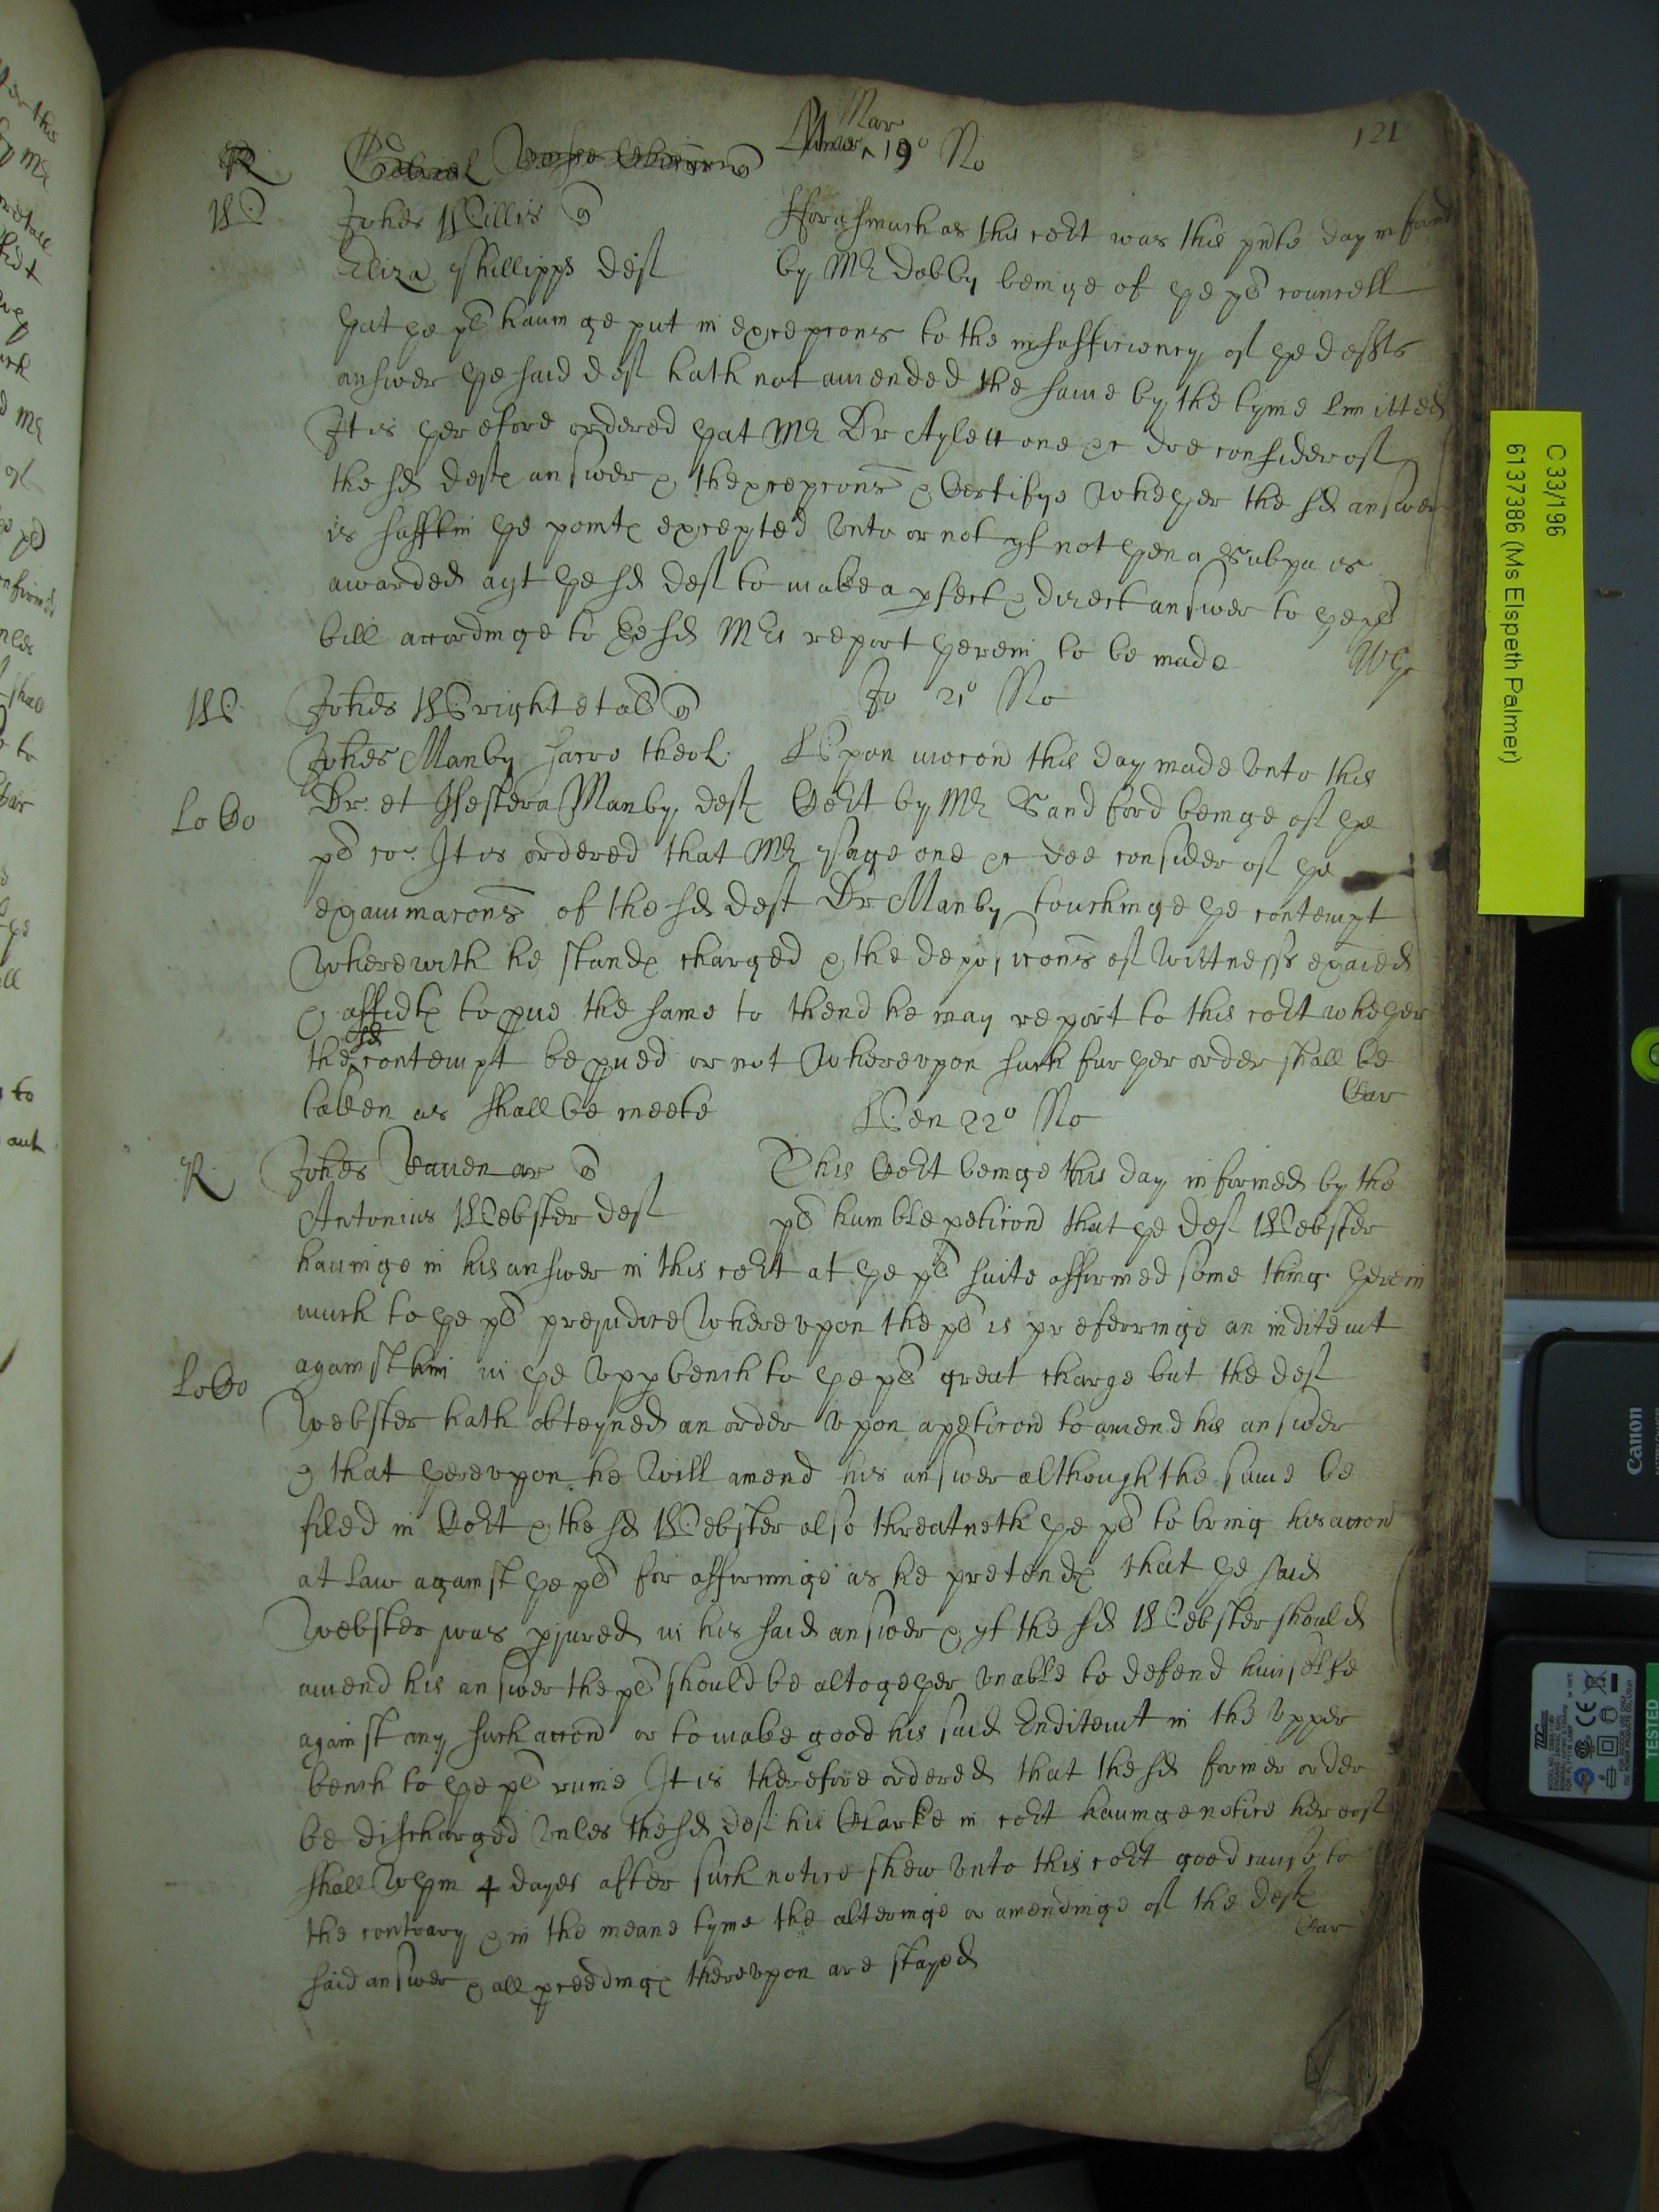 121
Mar
19° No
R
W Johes Willis q
Fforasmuch as this cort was this pnte day informed
Eliza Phillipps deft
by Mr Dobby beinge of ye plt councell
yat ye plt hauinge put in excepcons to the insufficiency of ye defts
answer ye said deft hath not amended the same by the tyme limitted
It is yerefore ordered yat Mr Dr Aylett one &c doe consider of
the sd defte answer & thexcepcons & Certifye wheyer the sd answer
is suffic in ye pointe excepted vnto or not yf not yen a Subpa is
awarded agt ye sd deft to make a pfect & direct answer to ye plt
bill accordinge to ye sd Mrs report yerein to be made
W Johes Wright et al q
Jo 21° No
Johes Manby sacro theol:
Vpon mocon this day made vnto this
Lo Co
Dr. et Hestera Manby defte
Cort by Mr Sandford beinge of ye
plt co. It is ordered that Mr Page one &c doe consider of ye
examinacons of the sd deft Dr Manby touchinge ye contempt
wherewith he stande charged & the deposicons of wittnesss exaied
& affidte to pue the same to thend he may report to this cort wheyer
sd
the contempt be pued or not wherevpon such furyer order shall be
taken as shall be meete
Car
Ven 22° No
R Johes Vauen ar q
This Cort beinge this day informed by the
Antonius Webster deft
plt humble peticond that ye deft Webster
hauinge in his answer in this cort at ye plt suite affirmed some thing yerein
much to ye plt prejudice wherevpon the plt is preferringe an inditemt
LoCo
against him in ye vpp bench to ye plt great charge but the deft
Webster hath obteyned an order vpon a peticond to amend his answer
& that yerevpon he will amend his answer although the same be
filed in Cort & the sd Webster also threatneth ye plt to bring his accond
at law against ye plt for affirminge as he pretende that ye said
Webster was pjured in his said answer & yf the sd Webster should
amend his answer the plt should be altogeyer vnable to defend himselfe
against any such accond or to make good his said Enditemt in the vpper
bench to ye plt ruine It is therefore ordered that the sd former order
be discharged vnles the sd deft his Clarke in cort hauinge notice hereof
shall wthin 4 dayes after such notice shew vnto this cort good cause to
the contrary & in the meane tyme the alteringe or amendinge of the defte
Car
said answer & all pceedinge therevpon are stayed
C 33/196
6137386 (Ms Elspeth Palmer)
Canon
TESTED